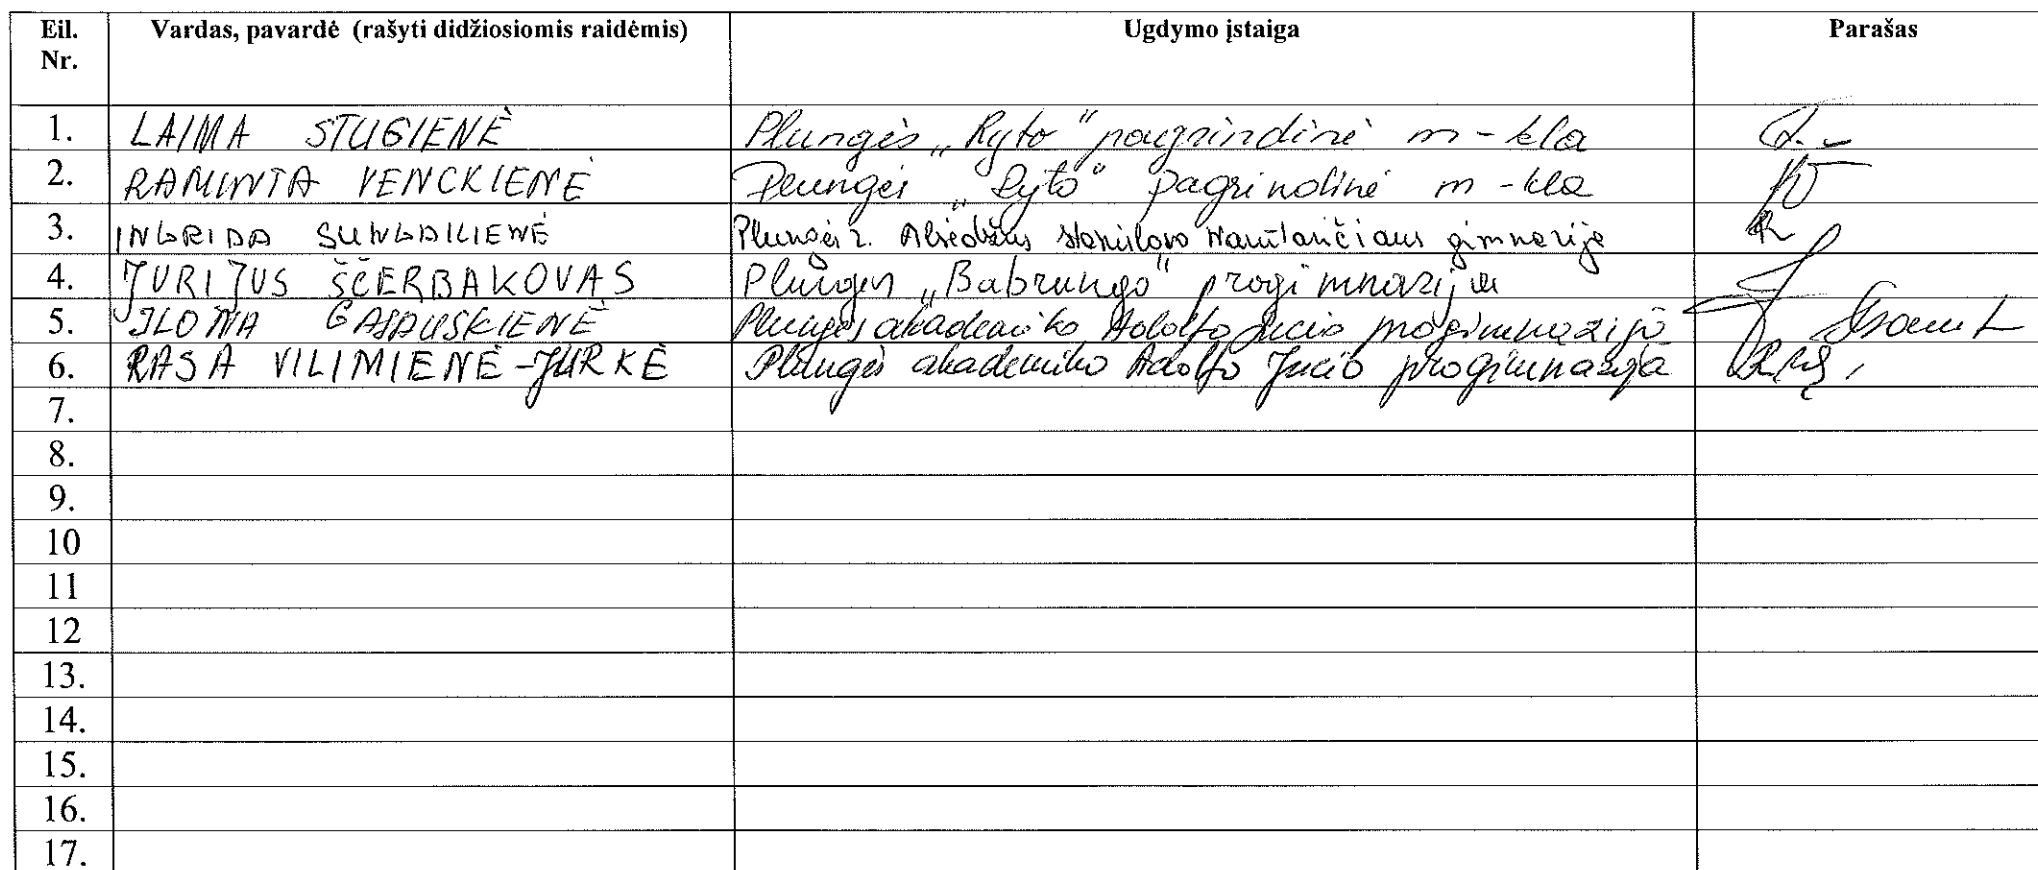 Eil. Nr. Vardas, pavardė (rašyti didžiosiomis raidėmis) Ugdymo įstaiga Parašas
1. LAIMA STUGIENĖ Plungės „Ryto“ pagrindinė m-kla
2. RAMINTA VENCKIENĖ Plungės „Ryto“ pagrindinė m-kla
3. INGRIDA SUNGAILIENĖ Plungės r. Alsėdžių Stanislovo Narutavičiaus gimnazija
4. JURIJUS ŠČERBAKOVAS Plungės „Babrungo“ progimnazija
5. ILONA Plungės akademiko Adolfo Jucio progimnazija
6. RASA VILIMIENĖ-JURKĖ Plungės akademiko Adolfo Jucio progimnazija
7.
8.
9.
10
11
12
13.
14.
15.
16.
17.